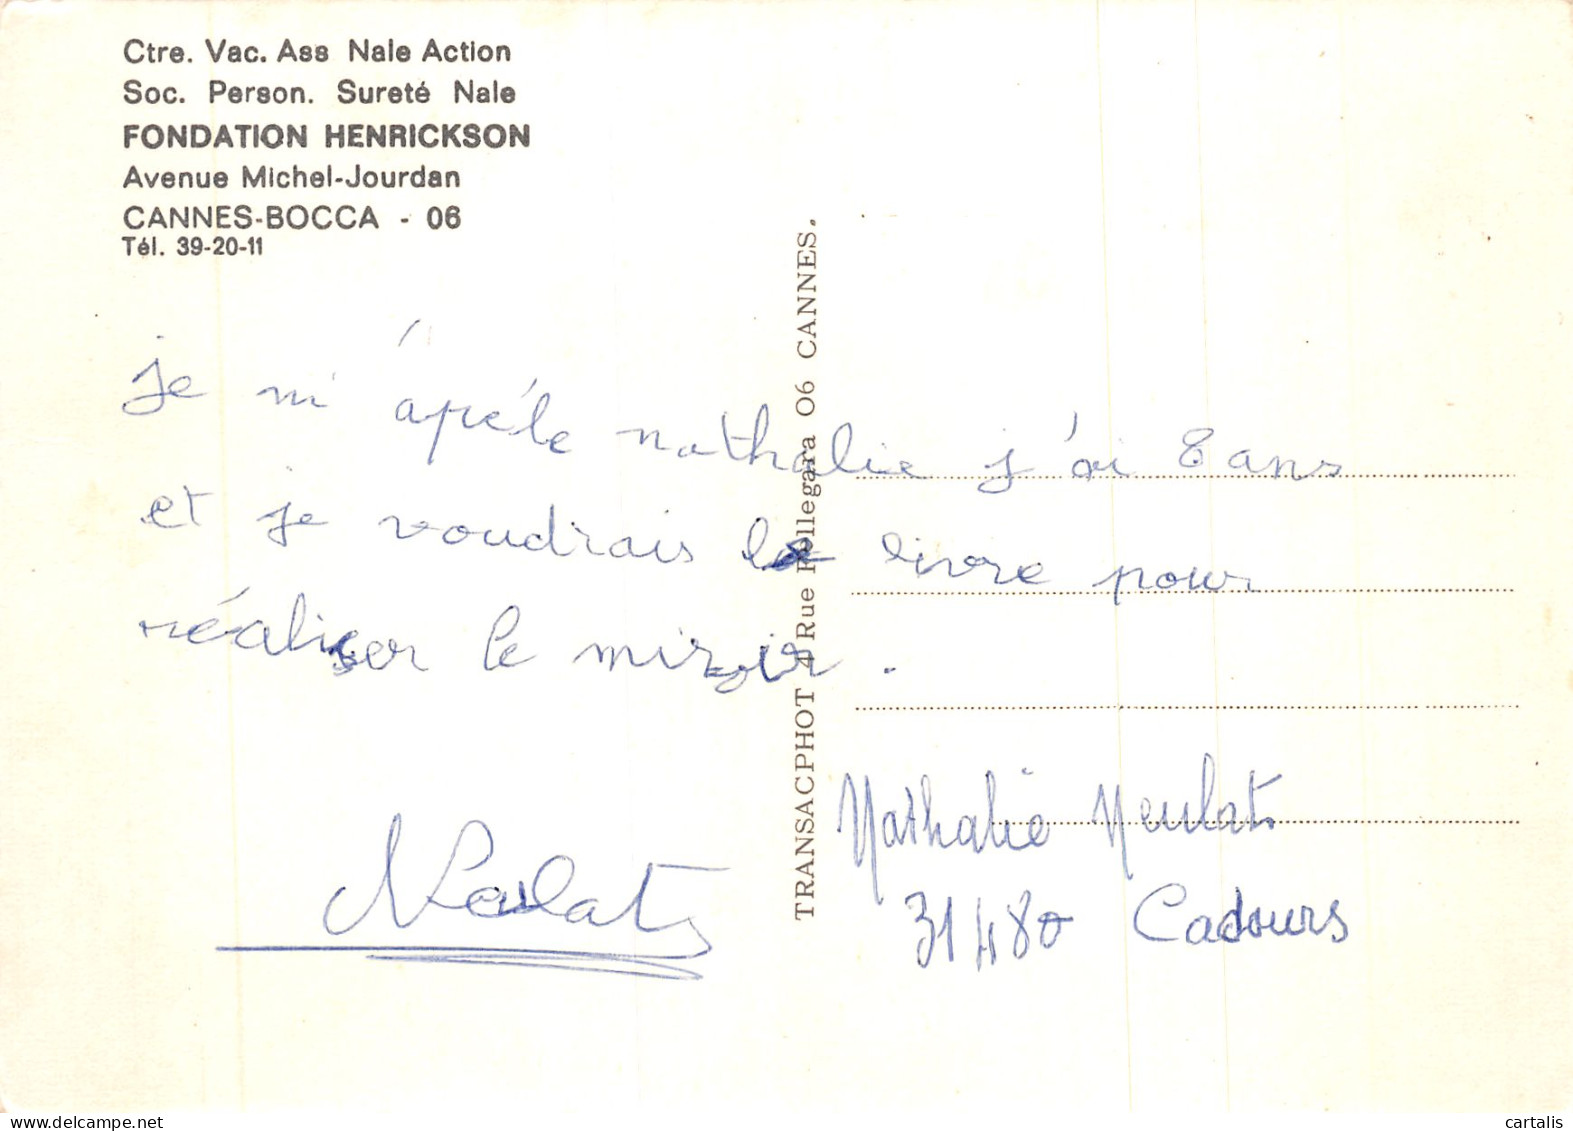 Ctre. Vac. Ass Nale Action
Soc. Person. Sureté Nale
FONDATION HENRICKSON
Avenue Michel-Jourdan
CANNES-BOCCA - 06
Tél. 39-20-11
je m'apéle nathalie j'ai 8 ans
et je voudrais le livre pour
réaliser le miroir.
Neulats
TRANSACPHOT 4 Rue Fellegara 06 CANNES.
Nathalie Neulats
31480 Cadours
cartalis